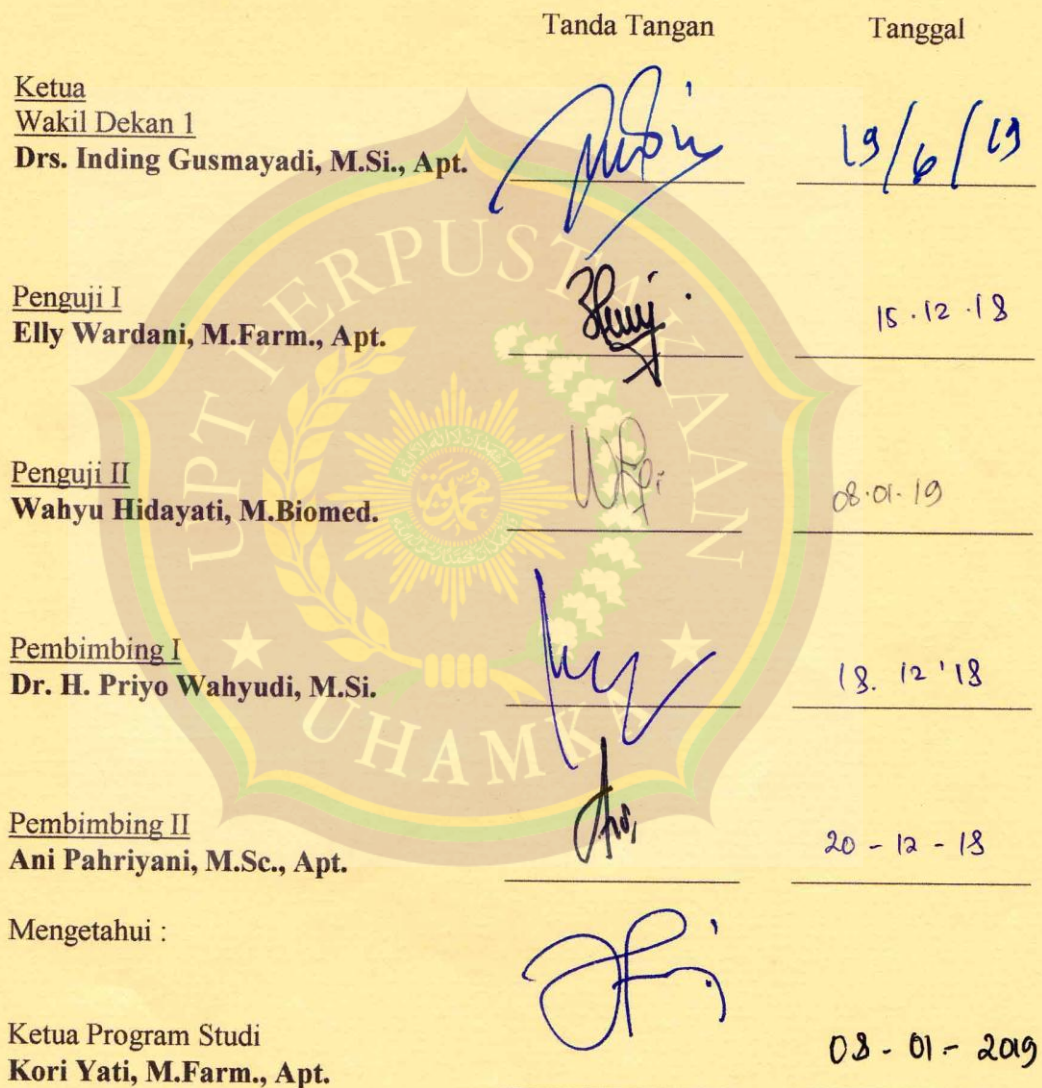 Tanda Tangan Tanggal
Ketua
Wakil Dekan 1
Drs. Inding Gusmayadi, M.Si., Apt. 19/6/19
Penguji I
Elly Wardani, M.Farm., Apt. 15.12.18
Penguji II
Wahyu Hidayati, M.Biomed. 08.01.19
Pembimbing I
Dr. H. Priyo Wahyudi, M.Si. 18.12'18
Pembimbing II
Ani Pahriyani, M.Sc., Apt. 20-12-18
Mengetahui :
Ketua Program Studi
Kori Yati, M.Farm., Apt. 08-01-2019
UPT PERPUSTAKAAN
UHAMKA